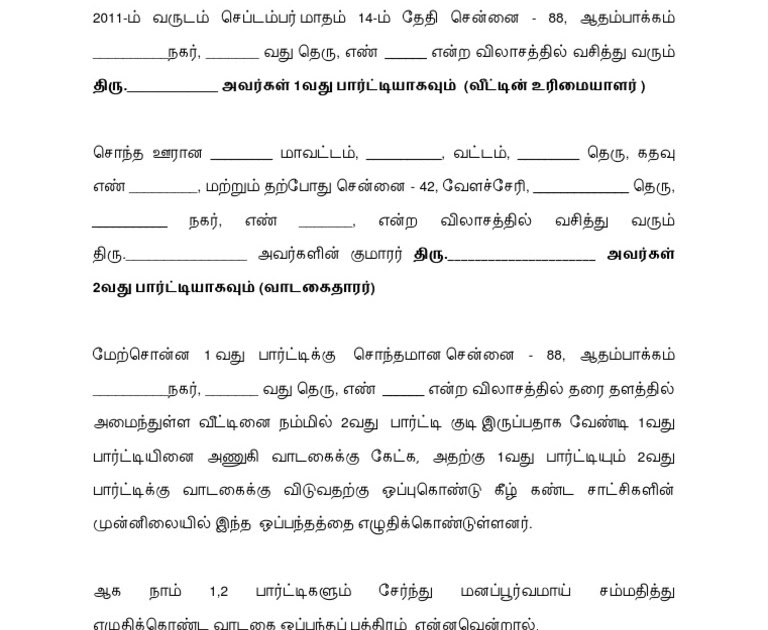 2011-ம் வருடம் செப்டம்பர் மாதம் 14-ம் தேதி சென்னை - 88, ஆதம்பாக்கம்
__________நகர், _______ வது தெரு, எண் ______ என்ற விலாசத்தில் வசித்து வரும்
திரு.____________ அவர்கள் 1வது பார்ட்டியாகவும் (வீட்டின் உரிமையாளர் )
சொந்த ஊரான ________ மாவட்டம், __________, வட்டம், ________ தெரு, கதவு
எண் _________, மற்றும் தற்போது சென்னை - 42, வேளச்சேரி, ____________ தெரு,
__________ நகர், எண் _______, என்ற விலாசத்தில் வசித்து வரும்
திரு.________________ அவர்களின் குமாரர் திரு.______________________ அவர்கள்
2வது பார்ட்டியாகவும் (வாடகைதாரர்)
மேற்சொன்ன 1 வது பார்ட்டிக்கு சொந்தமான சென்னை - 88, ஆதம்பாக்கம்
__________நகர், _______ வது தெரு, எண் ______ என்ற விலாசத்தில் தரை தளத்தில்
அமைந்துள்ள வீட்டினை நம்மில் 2வது பார்ட்டி குடி இருப்பதாக வேண்டி 1வது
பார்ட்டியினை அணுகி வாடகைக்கு கேட்க, அதற்கு 1வது பார்ட்டியும் 2வது
பார்ட்டிக்கு வாடகைக்கு விடுவதற்கு ஒப்புகொண்டு கீழ் கண்ட சாட்சிகளின்
முன்னிலையில் இந்த ஒப்பந்தத்தை எழுதிக்கொண்டுள்ளனர்.
ஆக நாம் 1,2 பார்ட்டிகளும் சேர்ந்து மனப்பூர்வமாய் சம்மதித்து
எழுதிக்கொண்ட வாடகை ஒப்பந்தப் பத்திரம் என்னவென்றால்,